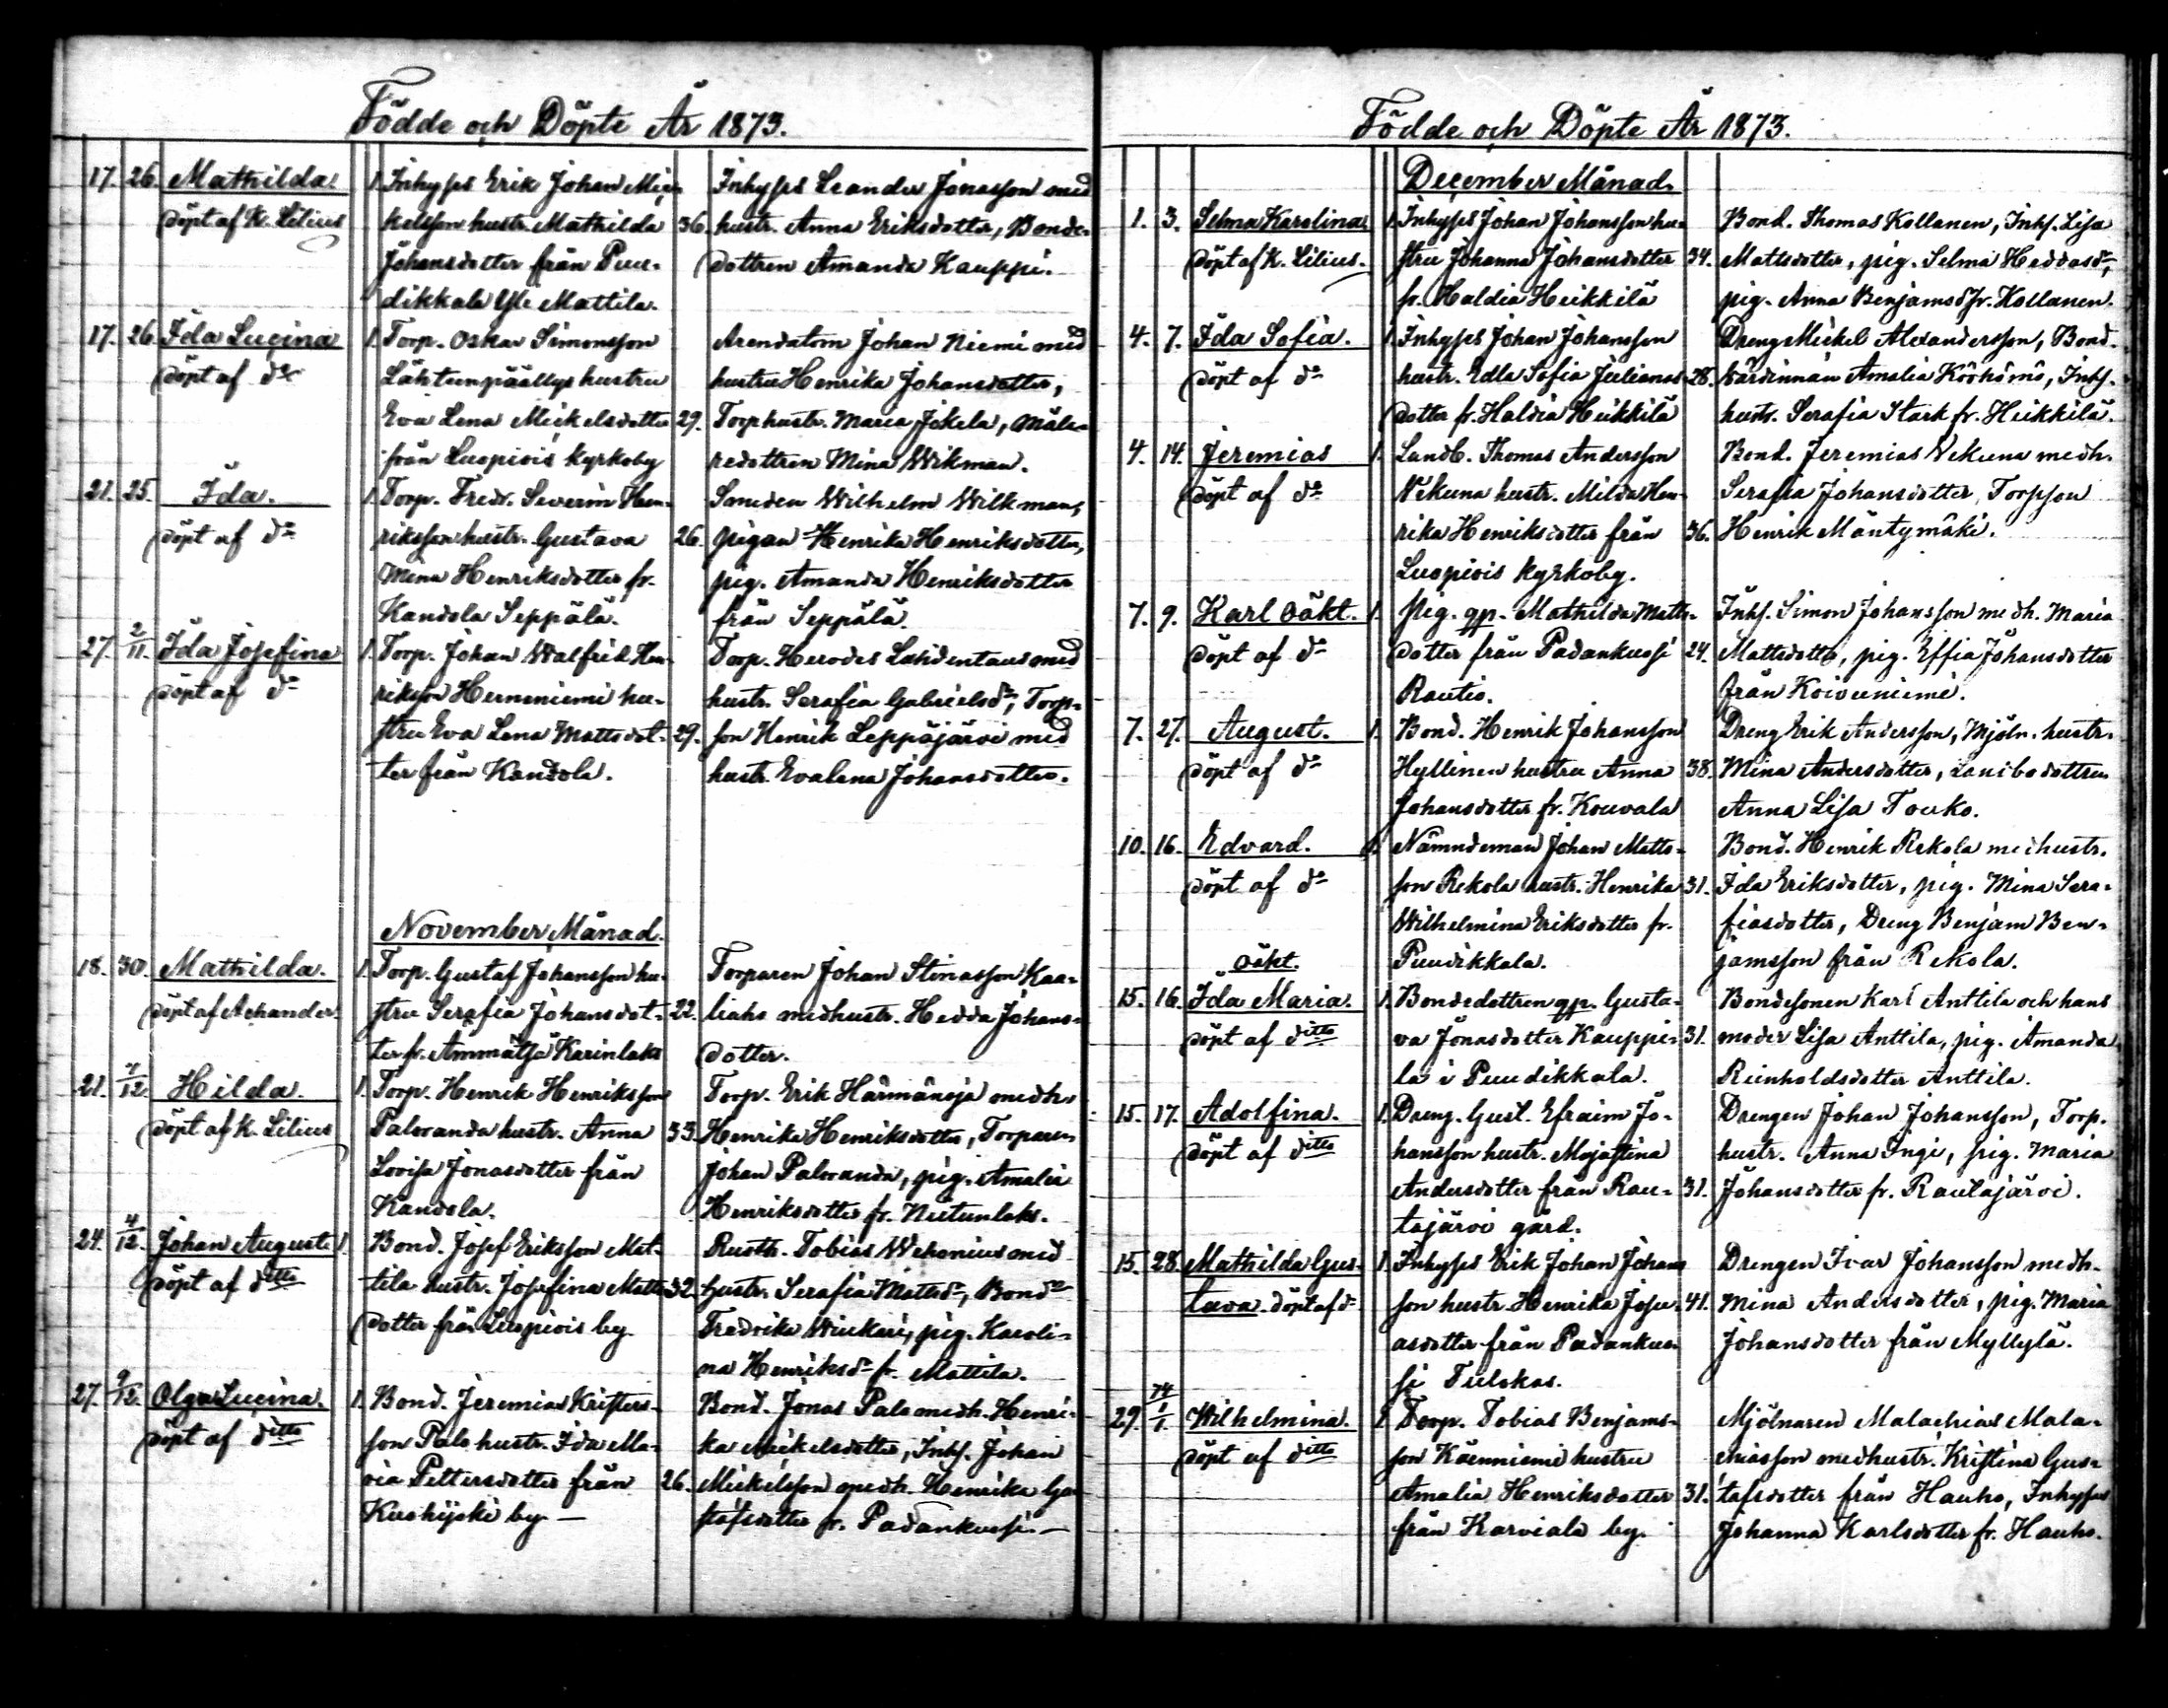 Födde och Döpte År 1873.
17. 26. Mathilda. 1. Inhyses Erik Johan Mic- Inhyses Leander Jonasson med
döpt af K. Lilius kelsson hustr. Mathilda 36. hustr. Anna Eriksdotter, Bonde-
Johansdotter från Puu- dottren Amanda Kauppi.
dikkala Yle Mattila.
17. 26. Ida Lucina 1. Torp. Oskar Simonsson Arendatorn Johan Niemi med
döpt af d:o hustru hustru Henrika Johansdotter,
Eva Lena Mickelsdotter 29. Torp hustr. Maria Jokela, Måla-
från Luopiois kyrkoby redottren Mina Wikman.
21. 25. Ida. 1. Torp. Fredr. Severin Hen- Smeden Wilhelm Wilkman,
döpt af d:o riksson hustr. Gustava 26. pigan Henrika Henriksdotter,
Mina Henriksdotter fr. pig. Amanda Henriksdotter
Kandola Seppälä. från Seppälä.
27. 2/11. Ida Josefina 1. Torp. Johan Walfrid Hen- Torp. Herodes Lahdentaus med
döpt af d:o riksson Hernesniemi hu- hustr. Serafia Gabrielsd:r, Torp-
stru Eva Lena Mattsdot- 29. son Henrik Leppäjärvi med
ter från Kandola. hustr. Evalena Johansdotter.
November Månad.
18. 30. Mathilda. 1. Torp. Gustaf Johansson hu- Torparen Johan Stinasson Kaa-
döpt af Achander. stru Serafia Johansdot- 22. liaho med hustr. Hedda Johans-
ter fr. Ammätsä Karinlaks dotter.
21. 7/12 Hilda. 1. Torp. Henrik Henriksson Torp. Erik Härmänoja med h.
döpt af K. Lilius Paloranda hustr. Anna 33. Henrika Henriksdotter, Torparen
Lovisa Jonasdotter från Johan Paloranda, pig. Amalia
Kandola. Henriksdotter fr. Neitunlaks.
24. 4/12. Johan August 1. Bond. Josef Eriksson Mat- Rusth. Tobias Wehonius med
döpt af ditto tila hustr. Josefina Matts- 32. hustr. Serafia Mattsd:r, Bondd:r
dotter från Luopiois by. Fredrika Winkari, pig. Karoli-
na Henriksd:r fr. Mattila.
27. 9/12. Olga Lucina. 1. Bond. Jeremias Kristers- Bond. Jonas Palo med h. Henri-
döpt af ditto son Palo hustr. Ida Ma- ka Mickelsdotter, Inhs. Johan
ria Pettersdotter från 26. Mickelsson med h. Henrika Gu-
Kuohijoki by — stafsdotter fr. Padankussi.—
Födde och Döpte År 1873.
December Månad.
1. 3. Selma Karolina 1. Inhyses Johan Johansson hu- Bond. Thomas Kollanen, Inhs. Lisa
döpt af K. Lilius. stru Johanna Johansdotter 34. Mattsdotter, pig. Selma Heddasd:r,
fr. Haldia Heikkilä pig. Anna Benjamsd. fr. Kollanen.
4. 7. Ida Sofia. 1. Inhyses Johan Johansson Dreng Mickel Alexandersson, Bond.
döpt af d:o hustr. Edla Sofia Julianas- 28. värdinnan Amalia Köökömö, Inhs.
dotter fr. Haldia Heikkilä hustr. Serafia Stark fr. Heikkilä.
4. 14. Jeremias 1. Landb. Thomas Andersson Bond. Jeremias Wekuna med h.
döpt af d:o Wekuna hustr. Milda Hen- Serafia Johansdotter, Torpson
rika Henriksdotter från 36. Henrik Mäntymäki.
Luopiois kyrkoby.
7. 9. Karl oäkt. 1. Pig. qp. Mathilda Matts- Inhs. Simon Johansson med h. Maria
döpt af d:o dotter från Padankussi 24. Mattsdotter, pig. Effia Johansdotter
Rautio. från Koivuniemi.
7. 27. August. 1. Bond. Henrik Johansson Dreng Erik Andersson, Mjöln. hustr.
döpt af d:o Hyllinen hustru Anna 38. Mina Andersdotter, Landbodottren
Johansdotter fr. Kouvala Anna Lisa Touko.
10. 16. Edvard. 1. Nämndeman Johan Matts- Bond. Henrik Rekola med hustr.
döpt af d:o son Rekola hustr. Henrika 31. Ida Eriksdotter, pig. Mina Sera-
Wilhelmina Eriksdotter fr. fiasdotter, Dreng Benjam Ben-
Puudikkala. jamsson från Rekola.
oäkt.
15. 16. Ida Maria. 1. Bondedottren qp. Gusta- Bondesonen Karl Anttila och hans
döpt af ditto va Jonasdotter Kauppi- 31. moder Lisa Anttila, pig. Amanda
la i Puudikkala. Reinholdsdotter Anttila.
15. 17. Adolfina. 1. Dreng. Gust. Efraim Jo- Drengen Johan Johansson, Torp.
döpt af ditto hansson hustr. Majastina hustr. Anna Ingi, pig. Maria
Andersdotter från Rau- 31. Johansdotter fr. Rautajärvi.
tajärvi gård.
15. 28. Mathilda Gus- 1. Inhyses Erik Johan Johans- Drengen Ivar Johansson med h.
tava. döpt af d:o son hustr. Henrika Josu- 41. Mina Andersdotter, pig. Maria
asdotter från Padankus- Johansdotter från Myllylä.
si Tulokas.
29. 74 1/1 Wilhelmina. 1. Torp. Tobias Benjams- Mjölnaren Malachias Mala-
döpt af ditto son Käenniemi hustru chiasson med hustr. Kristina Gus-
Amalia Henriksdotter 31. tafsdotter från Hauho, Inhyses
från Karviala by. Johanna Karlsdotter fr. Hauho.